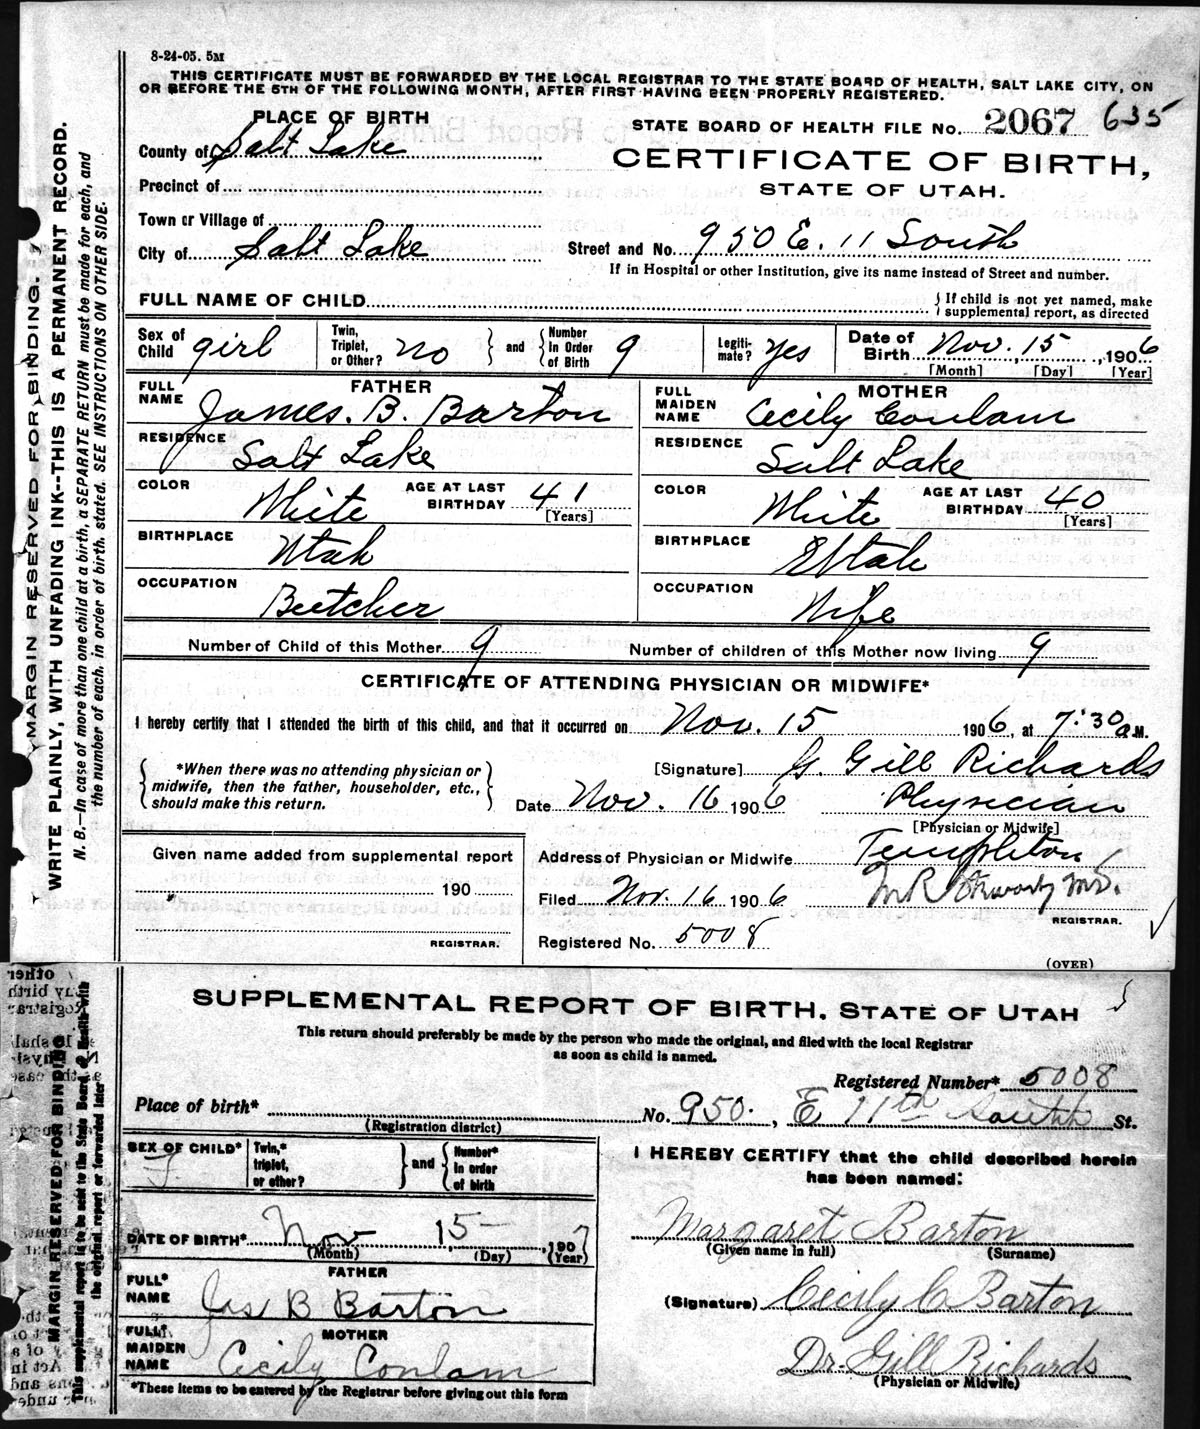 8-24-05. 5M
THIS CERTIFICATE MUST BE FORWARDED BY THE LOCAL REGISTRAR TO THE STATE BOARD OF HEALTH, SALT LAKE CITY, ON
OR BEFORE THE 5TH OF THE FOLLOWING MONTH, AFTER FIRST HAVING BEEN PROPERLY REGISTERED.
PLACE OF BIRTH
STATE BOARD OF HEALTH FILE No. 2067 635
County of Salt Lake
CERTIFICATE OF BIRTH,
Precinct of
STATE OF UTAH.
Town or Village of
City of Salt Lake
Street and No. 950 E. 11 South
If in Hospital or other Institution, give its name instead of Street and number.
FULL NAME OF CHILD
If child is not yet named, make
supplemental report, as directed
Sex of Child girl
Twin, Triplet, or Other? no
and
Number In Order of Birth 9
Legiti-mate? yes
Date of Birth Nov. 15, 1906
[Month] [Day] [Year]
FATHER
FULL NAME James. B. Barton
RESIDENCE Salt Lake
COLOR White
AGE AT LAST BIRTHDAY 41
[Years]
BIRTHPLACE Utah
OCCUPATION Butcher
MOTHER
FULL MAIDEN NAME Cecily Coulam
RESIDENCE Salt Lake
COLOR White
AGE AT LAST BIRTHDAY 40
[Years]
BIRTHPLACE Utah
OCCUPATION Wife
Number of Child of this Mother 9
Number of children of this Mother now living 9
CERTIFICATE OF ATTENDING PHYSICIAN OR MIDWIFE*
I hereby certify that I attended the birth of this child, and that it occurred on Nov. 15 1906, at 7:30 a.M.
*When there was no attending physician or
midwife, then the father, householder, etc.,
should make this return.
[Signature] G. Gill Richards
Date Nov. 16 1906
Physician
[Physician or Midwife]
Given name added from supplemental report
190
REGISTRAR.
Address of Physician or Midwife Templeton
Filed Nov. 16 1906
M.D.
REGISTRAR.
Registered No. 5008
(OVER)
MARGIN RESERVED FOR BINDING.
WRITE PLAINLY, WITH UNFADING INK--THIS IS A PERMANENT RECORD.
N. B.--In case of more than one child at a birth, a SEPARATE RETURN must be made for each, and
the number of each, in order of birth, stated. SEE INSTRUCTIONS ON OTHER SIDE.
SUPPLEMENTAL REPORT OF BIRTH, STATE OF UTAH
This return should preferably be made by the person who made the original, and filed with the local Registrar
as soon as child is named.
Registered Number* 5008
Place of birth* No. 950., E 11th South St.
(Registration district)
SEX OF CHILD* F.
Twin,* triplet, or other?
and
Number* In order of birth
I HEREBY CERTIFY that the child described herein
has been named:
DATE OF BIRTH* Nov 15 1907
(Month) (Day) (Year)
Margaret Barton
(Given name in full) (Surname)
FATHER
FULL* NAME Jas B Barton
(Signature) Cecily C Barton
MOTHER
FULL* MAIDEN NAME Cecily Coulam
Dr. Gill Richards
(Physician or Midwife)
*These items to be entered by the Registrar before giving out this form
MARGIN RESERVED FOR BINDING
This supplemental report is to be sent to the State Board of Health with
the original report or forwarded later